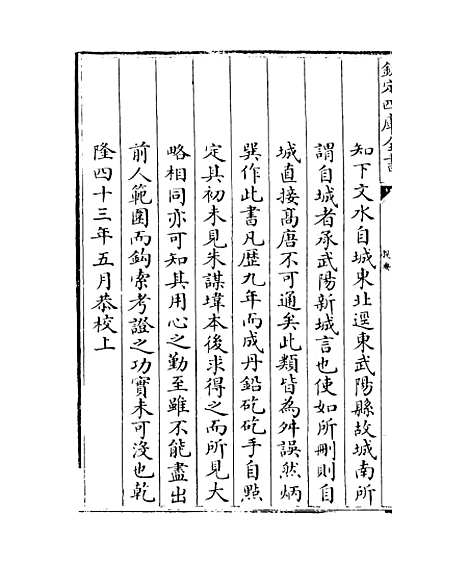 欽定四庫全書
提要
知下文水自城東北逕東武陽縣故城南所
謂自城者承武陽新城言也使如所刪則自
城直接髙唐不可通矣此類皆為舛誤然炳
巽作此書凡歴九年而成丹鉛矻矻手自㸃
定其初未見朱謀㙔本後求得之而所見大
略相同亦可知其用心之勤至雖不能盡出
前人範圍而鈎索考證之功實未可沒也乾
隆四十三年五月恭校上